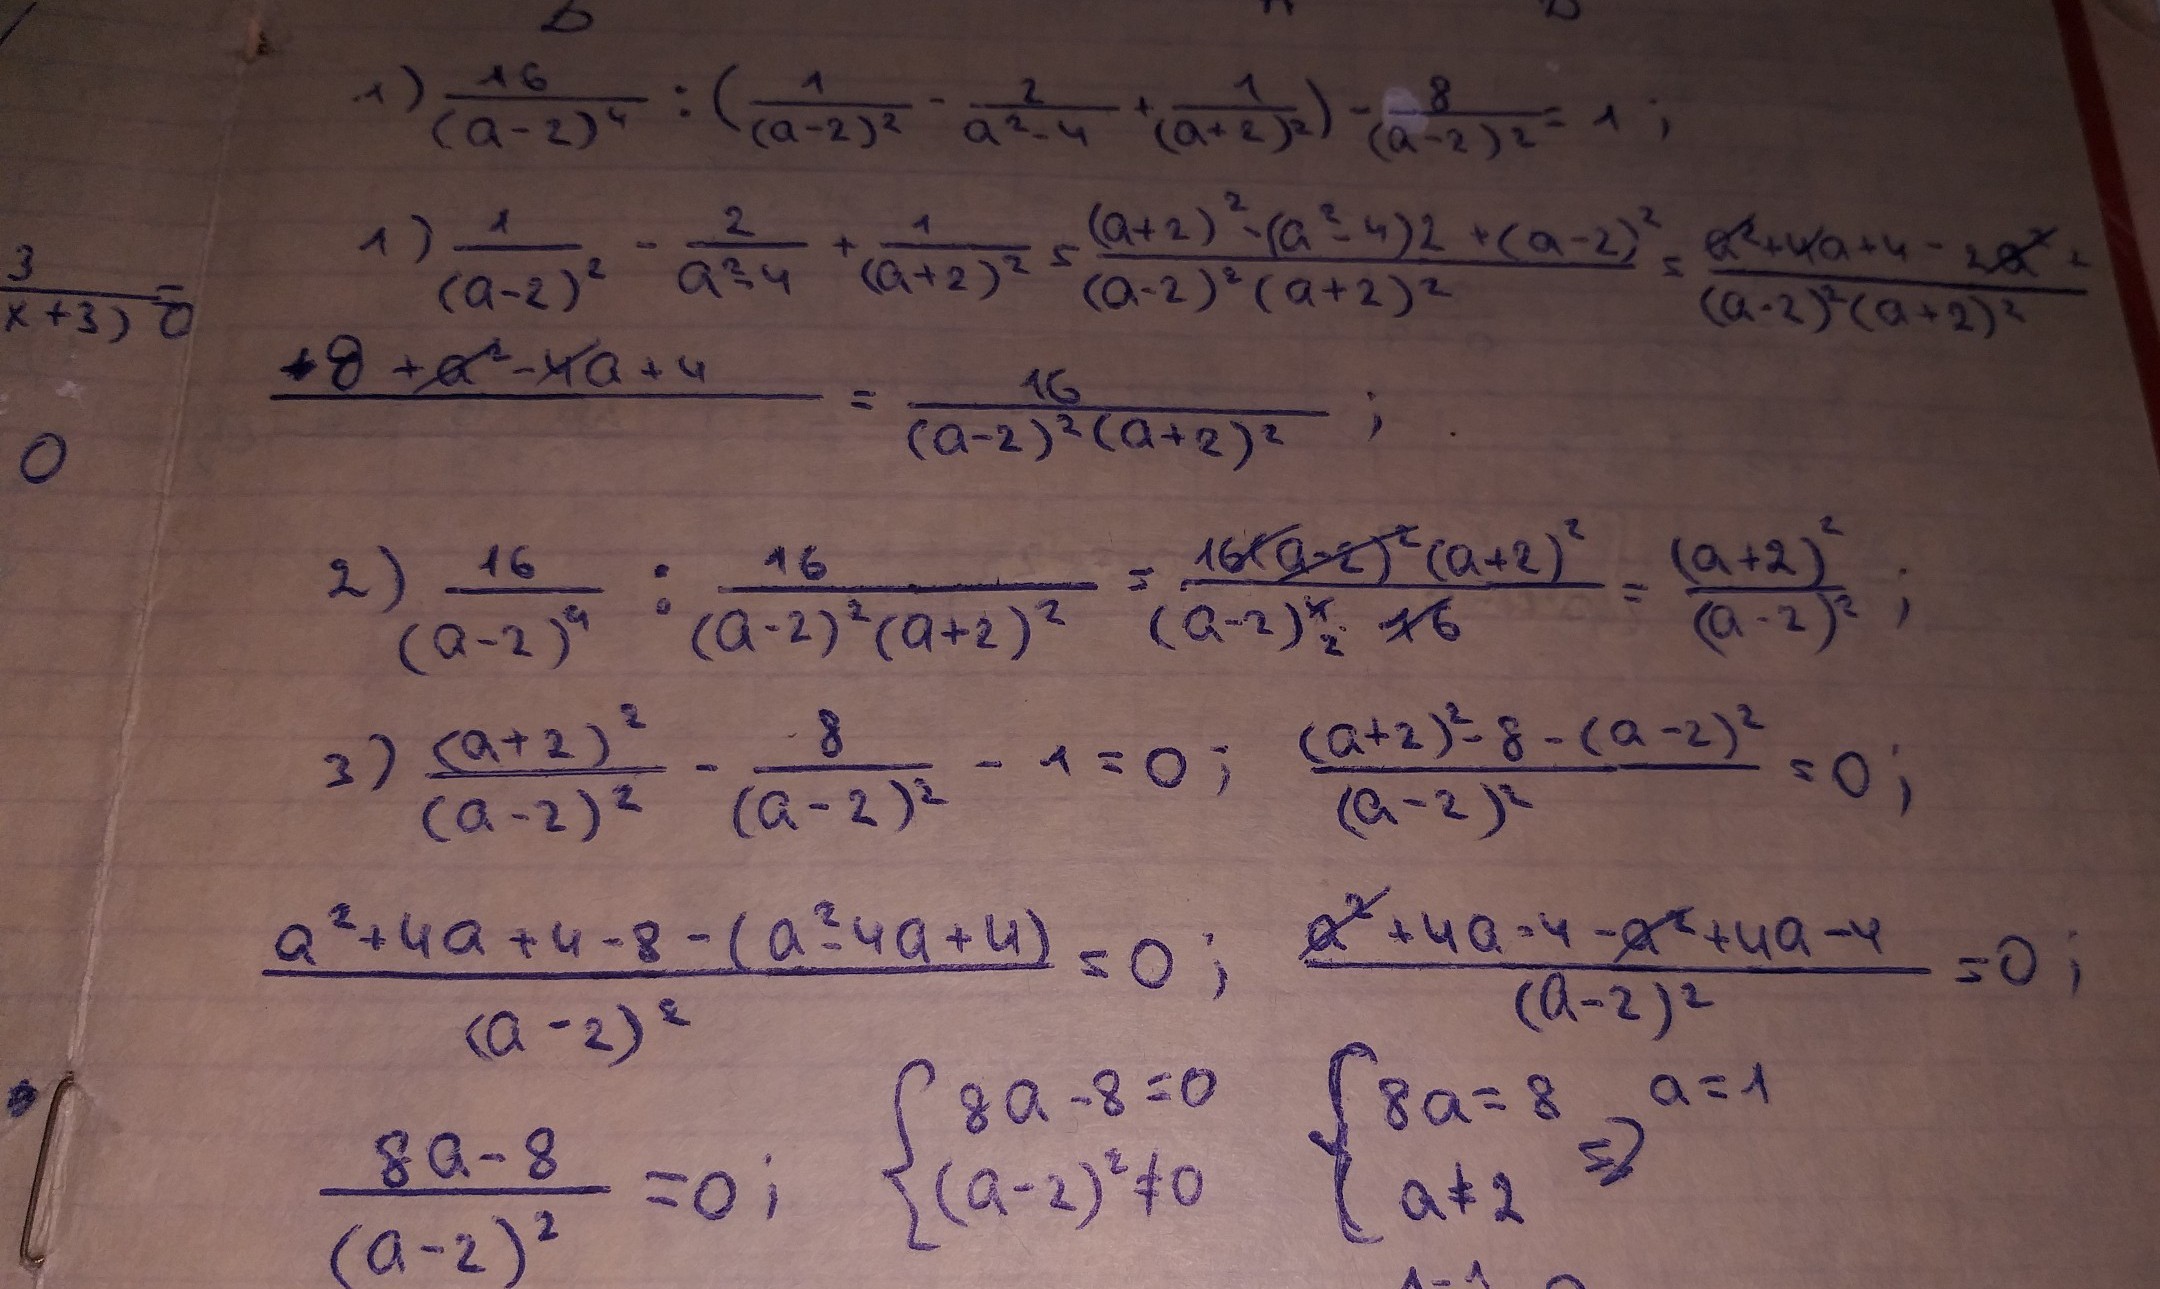 1) 16/(a-2)⁴ : (1/(a-2)² - 2/(a²-4) + 1/(a+2)²) - 8/(a-2)² = 1;
1) 1/(a-2)² - 2/(a²-4) + 1/(a+2)² = ((a+2)² - (a²-4)2 + (a-2)²)/((a-2)²(a+2)²) = (a²+4a+4-2a²+)/((a-2)²(a+2)²)
3/(x+3) = 0
+8+a²-4a+4 = 16/((a-2)²(a+2)²);
0
2) 16/(a-2)⁴ : 16/((a-2)²(a+2)²) = (16(a-2)²(a+2)²)/((a-2)⁴₂ · 16) = (a+2)²/(a-2)²;
3) (a+2)²/(a-2)² - 8/(a-2)² - 1 = 0; ((a+2)²-8-(a-2)²)/(a-2)² = 0;
(a²+4a+4-8-(a²-4a+4))/(a-2)² = 0; (a²+4a-4-a²+4a-4)/(a-2)² = 0;
(8a-8)/(a-2)² = 0; { 8a-8=0 (a-2)²≠0 { 8a=8 a≠2 => a=1